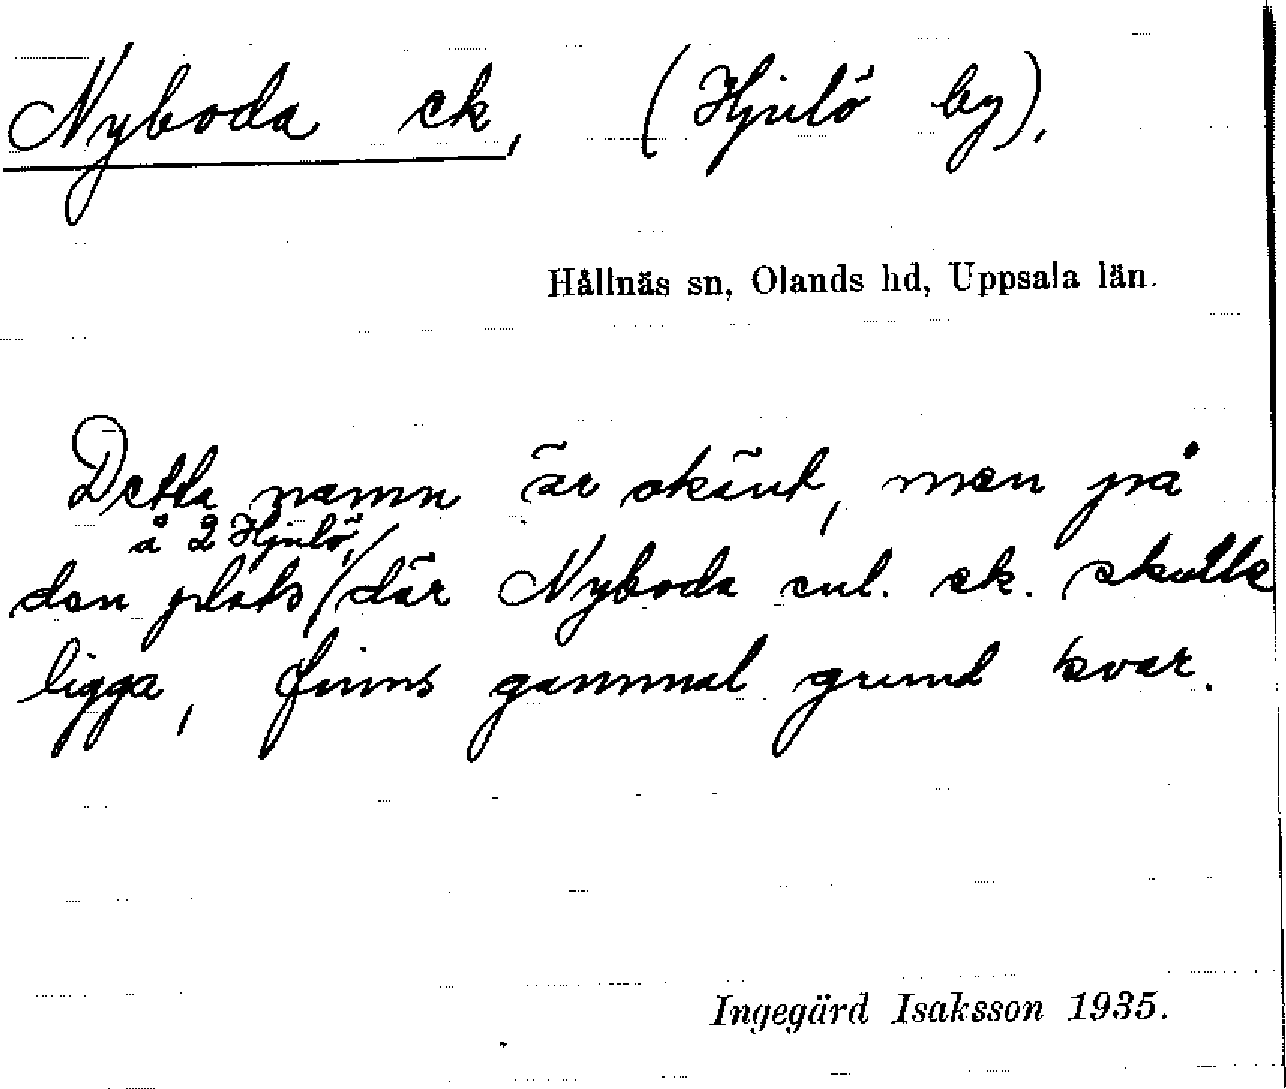 Nyboda ek, (Hjulö by),
Hållnäs sn, Olands hd, Uppsala län.
Detta namn är okänt, men på
å 2 Hjulö,
den plats / där Nyboda enl. ek. skulle
ligga, finns gammal grund kvar.
Ingegärd Isaksson 1935.